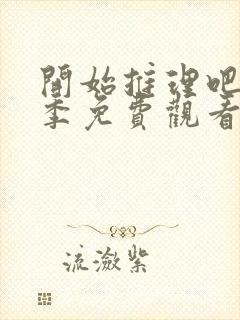 開始推理吧
季免費觀看
流瀲紫